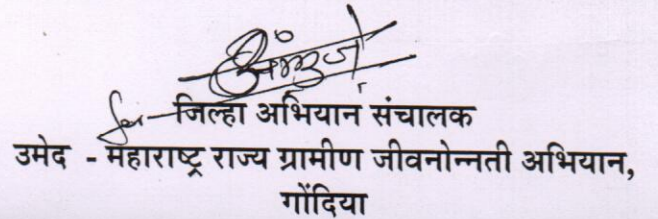 जिल्हा अभियान संचालक
उमेद - महाराष्ट्र राज्य ग्रामीण जीवनोन्नती अभियान,
गोंदिया